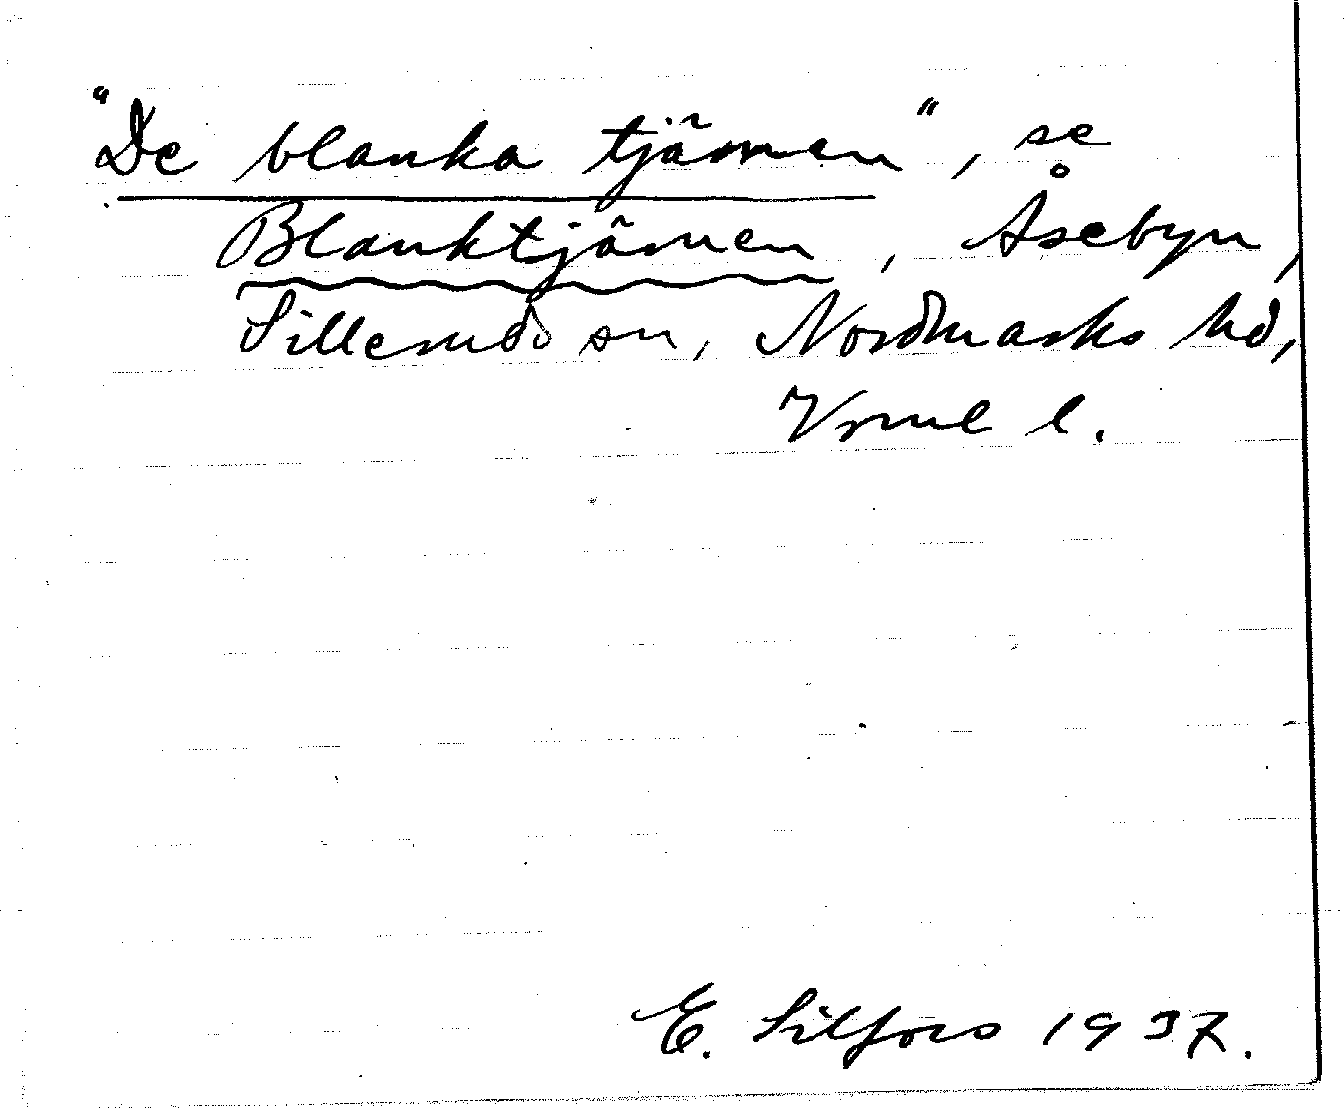 "De blanka tjärnen", se
Blanktjärnen, Åsebyn,
Silleruds sn, Nordmarks hd,
Vrml l.
E. Silfors 1937.